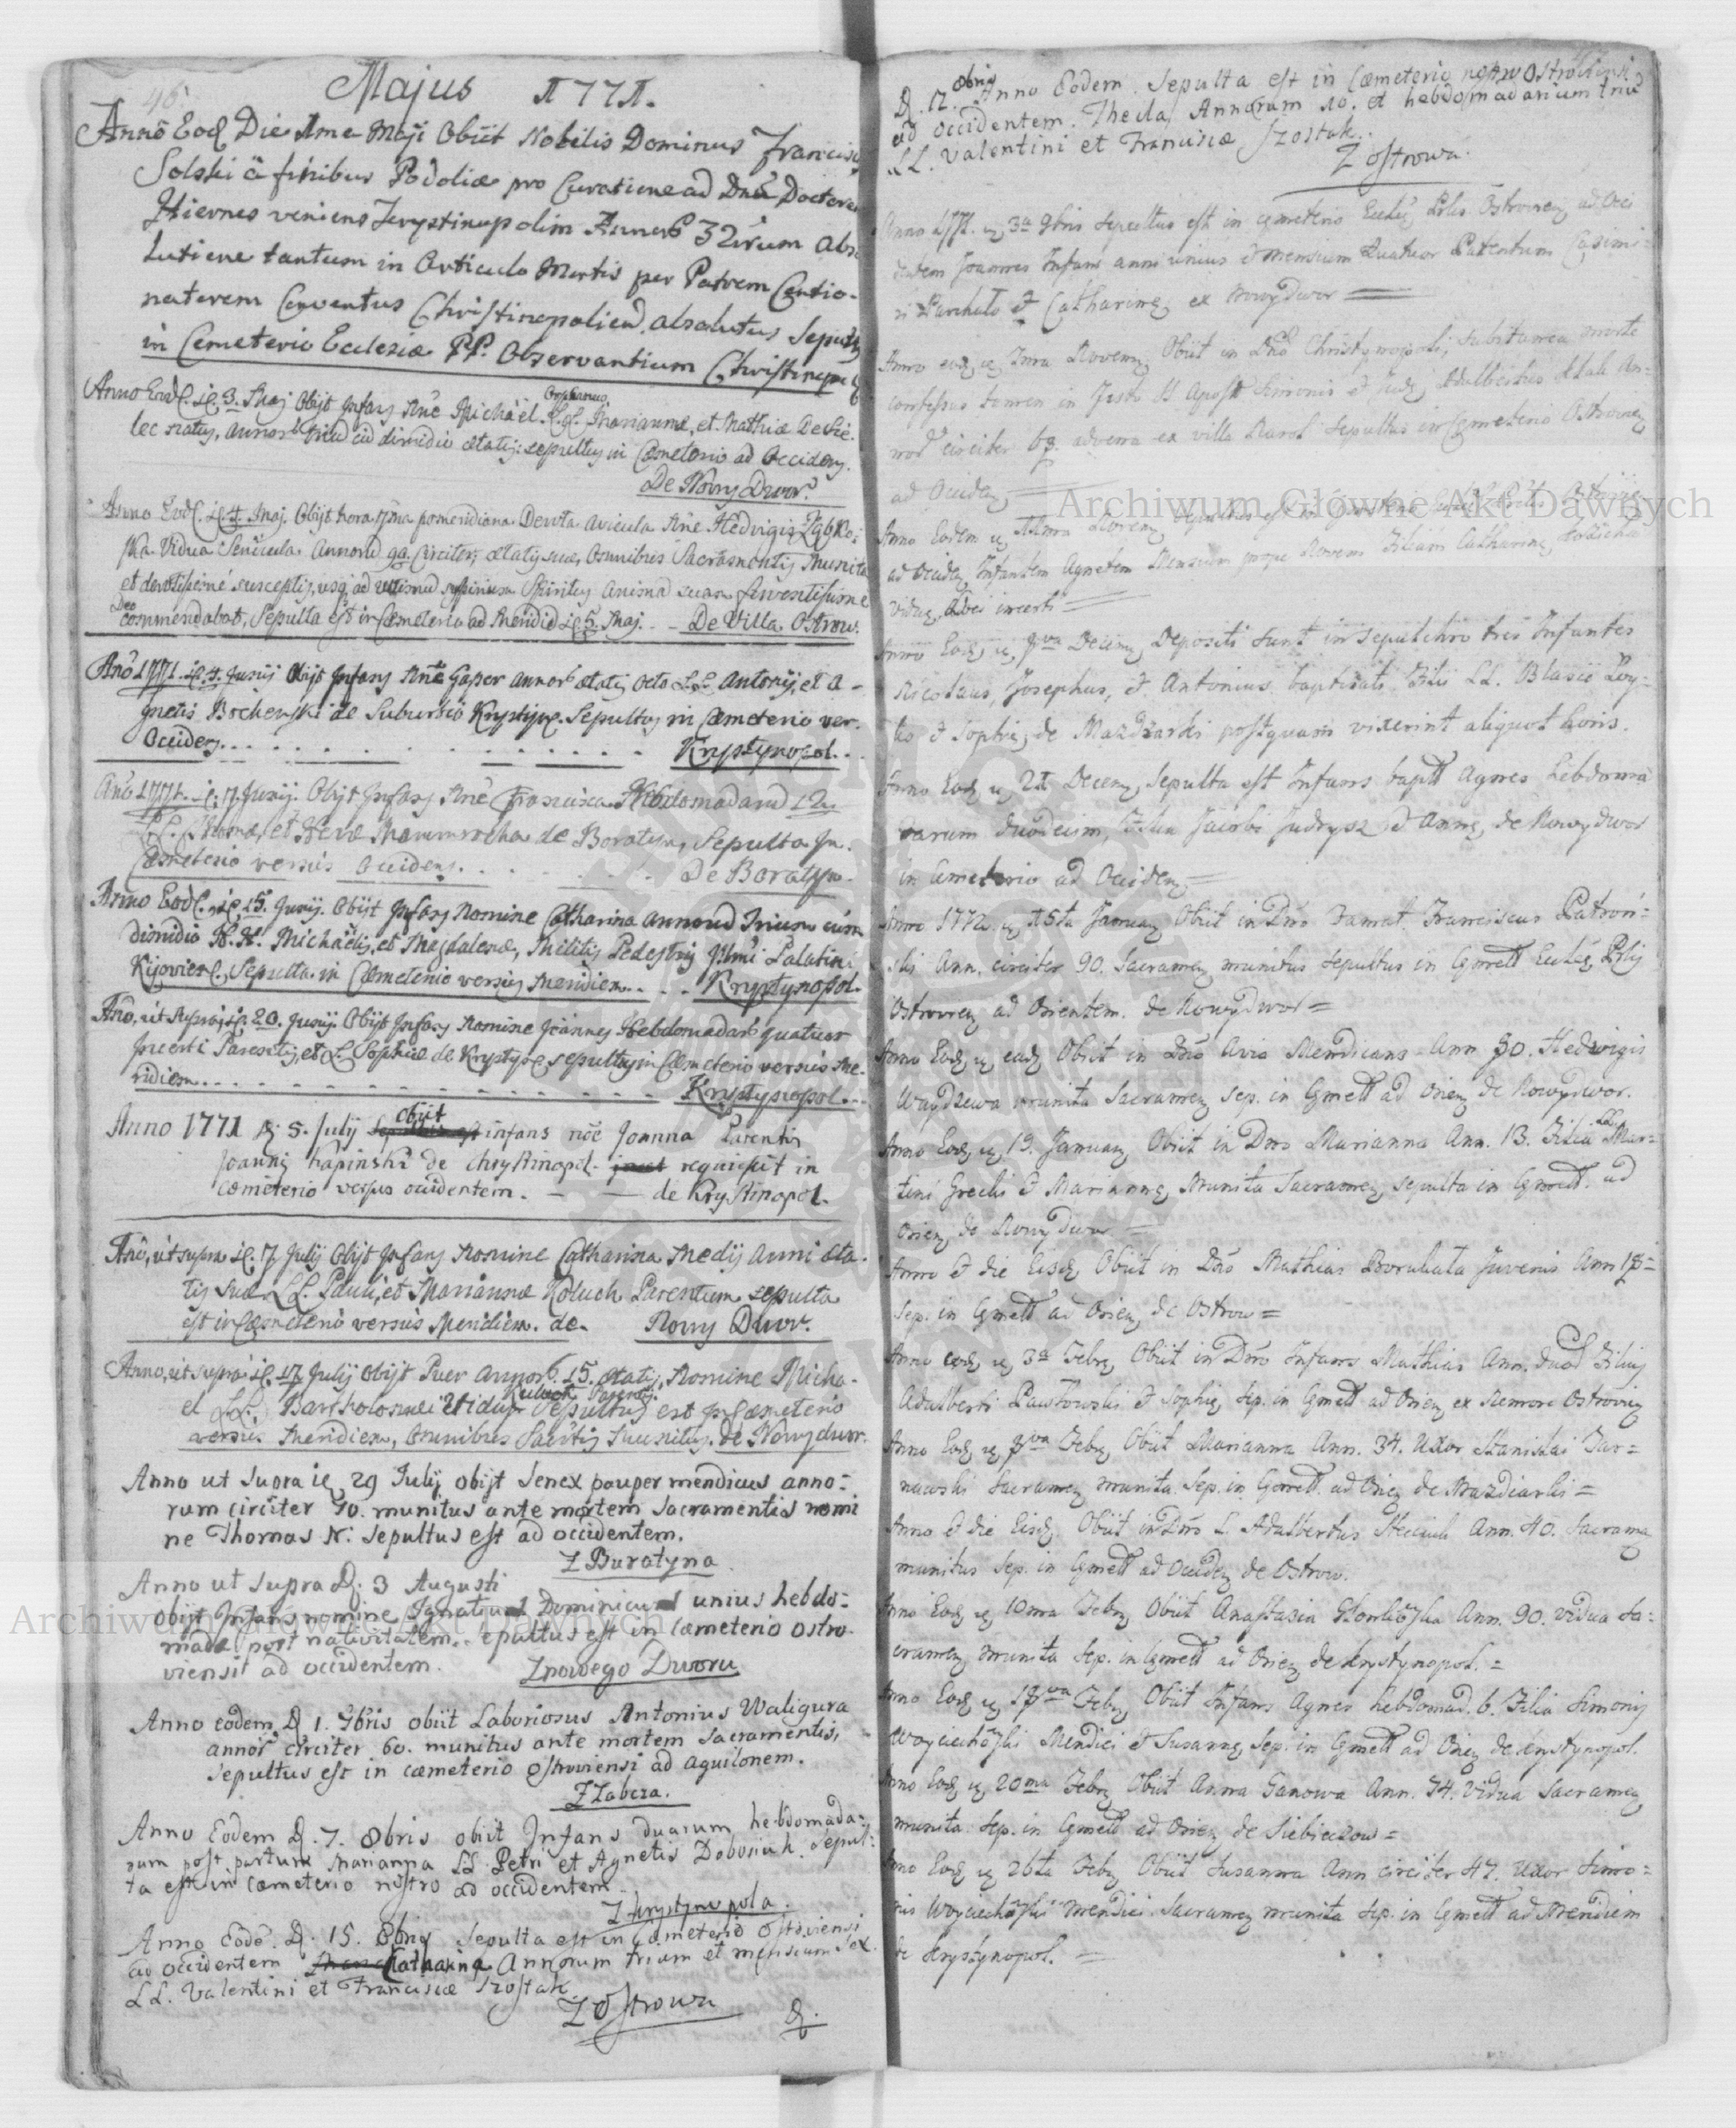 46.
Majus 1771.
Anno Eod. Die 1me Maji Obiit Nobilis Dominus Francisc
Solski à finibus Podoliæ pro Curatione ad Dnum Doctore
veniens Krystinopolim Annorum 32 absо
lutione tantum in Articulo Mortis per Patrem Contio-
natorem Conventus Christinopolien. absolutus Sepult
in Cemeterio Ecclesiæ PP. Observantium Christinop
Anno Eod. d. 3. Maj Obijt Infans Nne Michaël. Orphanus LL. Mariannæ, et Mathiæ
natus, annorum cu dimidio ætatis: sepultus in Cæmeterio ad Occidens.
De Nowy Dwor.
Anno Eod. d. 4. Maj. Obijt hora 7ma pomeridiana Devota avicula Nne Hedvigis
ska Vidua Senicula Annorum 90. Circiter, ætatis suæ, Omnibus Sacramentis Munita
et devotissime susceptis, usq; ad ultimum Spiritus Animam suam ferventissime
Deo commendabat, Sepulta est in Cæmeterio ad Meridiem d. 5. Maj. - De Villa Ostrow.
Ano 1771. d. 4. Junij Obijt Infans Nne Gasper annorum ætatis Octo LL. Antonij, et A-
gnetis Bochenski de Suburbio Krystynop. Sepultus in Cæmeterio ver.
Occidens. . . . Krystynopol.
Ano 1771. d. 7. Junij. Obijt Infans Nne Francisca Hebdomadarum 12.
LL. Thomæ, et Evæ de Boratyn, Sepulta In.
Cæmeterio versus Occidens. . . . De Boratyn.
Anno Eod. d. 15. Junij. Obijt Infans Nomine Catharina Annorum Trium cum
dimidio H. H. Michaëlis, et Magdalenæ, Militis Pedestris Illmi Palatini
Kijovien. Sepulta in Cæmeterio versus Meridiem. . . Krystynopol.
Ano, ut supra, d. 20. Junij. Obijt Infans Nomine Joannes Hebdomadarum quatuor
Incerti Parentis, et L. Sophiæ de Krystyn. sepultus in Cæmeterio versus Me-
ridiem. . . . Krystynopol.
Anno 1771 D. 5. July obiit infans nõe Joanna Parentis
Joannis Łapinski de Chrystinopol. requiescit in
cœmeterio versus occidentem. - de Krystinopol.
Ano, ut supra d. 7 Julij Obijt Infans Nomine Catharina Medij Anni æta-
tis suæ LL. Pauli, et Mariannæ Koluch Parentum sepulta
est in Cæmeterio versus Meridiem. de Nowy Dwor.
Anno, ut supra d. 17 Julij Obijt Puer Annorum 15. ætatis, Nomine Micha-
el LL. Bartholomæi Parent. Sepultus est In Cæmeterio
versus Meridiem, Omnibus Sacrtis Munitus. de Nowy dwor.
Anno ut supra d. 29 Julij obijt Senex pauper mendicus anno-
rum circiter 70. munitus ante mortem Sacramentis nomi
ne Thomas N: Sepultus est ad occidentem.
Z Buratyna
Anno ut supra D. 3 Augusti
obijt Infans nomine Ignatius Dominicus unius hebdo-
madæ post nativitatem. epultus est in cæmeterio ostro-
viensit ad occidentem. Znowego Dworu
Anno eodem D 1. 9bris obiit Laboriosus Antonius Waligura
annor circiter 60. munitus ante mortem Sacramentis,
Sepultus est in cæmeterio ostroviensi ad aquilonem.
Z Zabcza.
Anno Eodem D. 7. 8bris obiit Infans duarum hebdomada-
rum post partum Marianna LL Petri et Agnetis Sepul-
ta est in cæmeterio nostro ad occidentem.
Z Krystynopola.
Anno Eodē. D. 15. 8bris Sepulta est in cæmeterio ostroviensi
ad occidentem Catharina Annorum trium et mensium sex.
LL. Valentini et Franciscæ Szostak
Z Ostrowa D.
D. 17. 8bris Anno Eodem. Sepulta est in Cæmeterio nostro Ostroviensi
ad occidentem. Thecla Annorum 10. et hebdomadarum
LL. Valentini et Franciscæ Szostak.
Z Ostrowa.
Anno 1771. d. 3a 9bris Sepultus est in cemeterio Eccle Plis Ostrovien ad Occi
dentem Joannes Infans anni unius et Mensium Quatuor Parentum Casimi-
ri et Catharinæ ex Nowydwor
Anno eod. d. 7ma Novem. Obiit in Dno Christynopoli, subitanea morte
confessus tamen in Festo SS Apost Simonis et Judæ, Adalbertus An-
nor circiter advena ex villa Sepultus in Cemeterio Ostrovien
ad Occiden
Anno Eodem d. Novem Sepultus est in
ad Occiden Infantem Agnetem Mensium prope Novem Filiam Catharinæ
viduæ, Loci incerti
Anno Eod. d. 8va Decem. Depositi Sunt in Sepulchro tres Infantes
Nicolaus, Josephus, et Antonius baptisati Filii LL. Blasii
et Sophiæ de Mazdziarki postquam vixerint aliquot horis.
Anno Eod. d. 21 Decem. Sepulta est Infans bapt Agnes hebdoma
darum duodecim, Filia Jacobi Jędrysz et Annæ, de Nowydwor
in Cemeterio ad Occiden
Anno 1772. d. 15ta January Obiit in Dno Famat. Franciscus Patron-
ski Ann. circiter 90. Sacramen munitus sepultus in Cmett Eccle Plis
Ostrovien ad Orientem. de Nowydwor
Anno Eod. d. ead. Obiit in Dno Avia Mendicans Ann 80. Hedwigis
Waydzewa munita Sacramen sep. in Cmett ad Orien de Nowydwor.
Anno Eod. d. 19. January Obiit in Dno Marianna Ann. 13. Filia LL Mar-
tini Grecki et Mariannæ, Munita Sacramen, sepulta in Cmett. ad
Orien, de Nowydwor
Anno et die Eisd. Obiit in Dno Mathias Juvenis Ann 18
Sep. in Cmett ad Orien, de Ostrow
Anno eod. d. 3a Febr. Obiit in Dno Infans Mathias Ann. duor Filius
Adalberti Pawłowski et Sophiæ, Sep. in Cmett ad Orien, ex Nemore Ostrovien
Anno Eod. d. 8va Febr. Obiit Marianna Ann. 34. Uxor Stanislai Tar-
nawski Sacramen, munita. Sep. in Cmett. ad Orien de Mazdiarki
Anno et die Eisd. Obiit in Dno L. Adalbertus Ann. 40. Sacramen
munitus Sep. in Cmett ad Occiden de Ostrow.
Anno Eod. d. 10ma Febr. Obiit Anastasia Ann. 90. vidua Sa-
cramen, munita Sep. in Cmett ad Orien de Krystynopol.
Anno Eod. d. 18va Febr. Obiit Infans Agnes hebdomad. 6. Filia Simonis
Woyciechoski Mendici et Susannæ, Sep. in Cmett ad Orien de Krystynopol.
Anno Eod. d. 20ma Febr. Obiit Anna Ganowa Ann. 74. Vidua Sacramen
munita Sep. in Cmett ad Orien de Siebieczow
Anno Eod. d. 26ta Febr. Obiit Susanna Ann circiter 47. Uxor Simo-
nis Woyciechoski Mendici Sacramen munita Sep. in Cmett ad Meridiem
de Krystynopol.
Archiwum Główne Akt Dawnych
Archiwum Główne Akt Dawnych